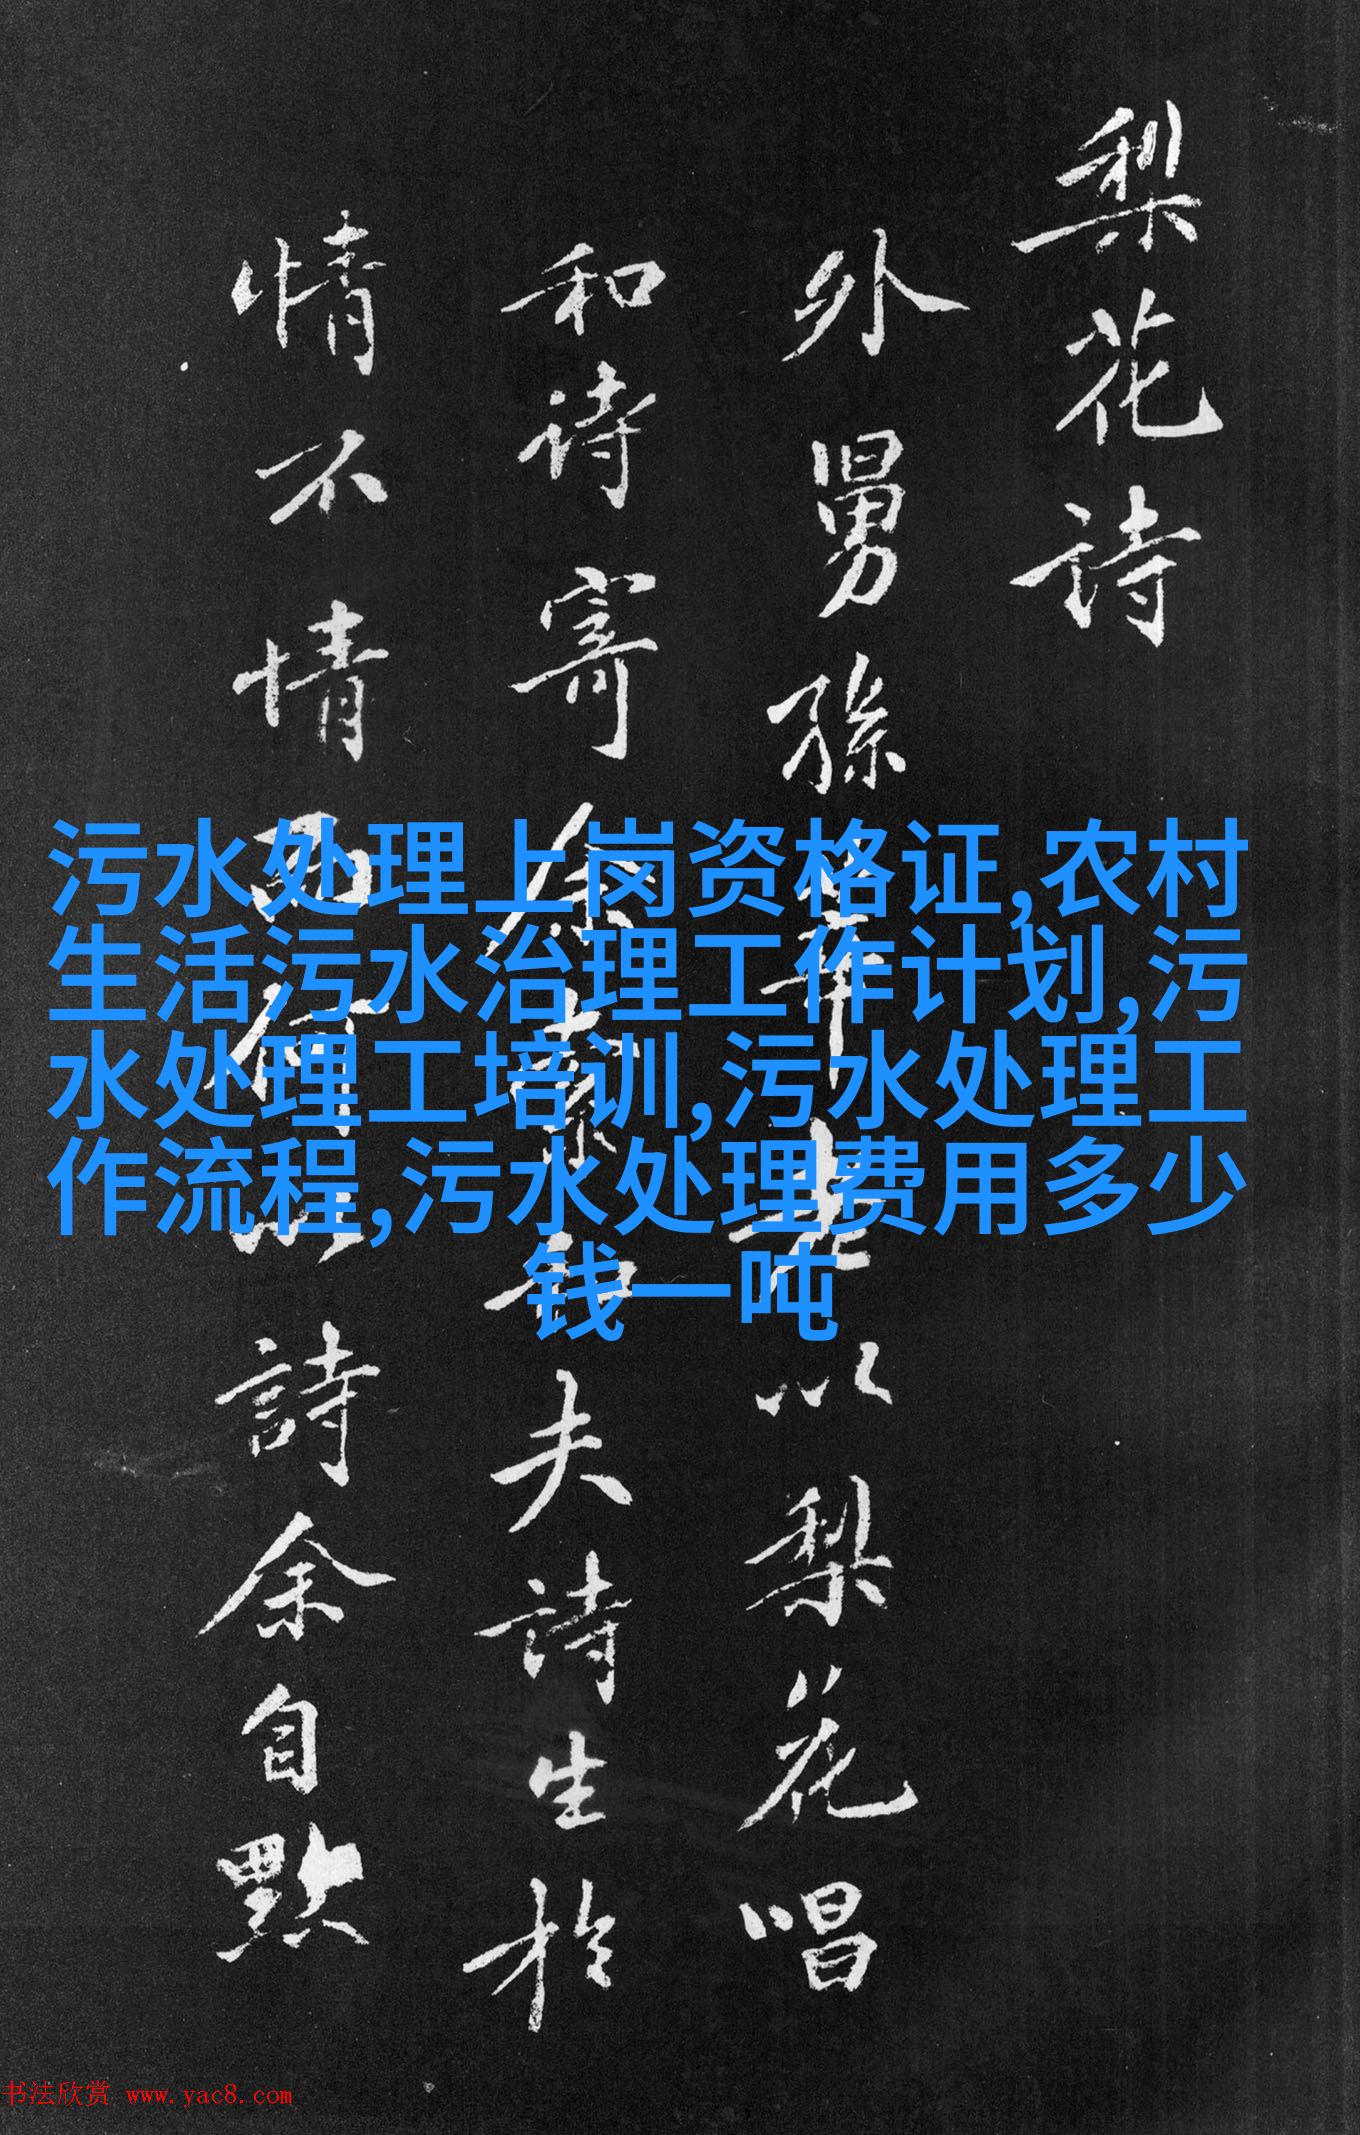 梨花詩
外舅孫莘老以梨花唱
和诗寄余索和夫詩生於
情不情而何以詩余自點
污水处理上岗资格证,农村
生活污水治理工作计划,污
水处理工培训,污水处理工
作流程,污水处理费用多少
钱一吨
书法欣赏 www.yac8.com